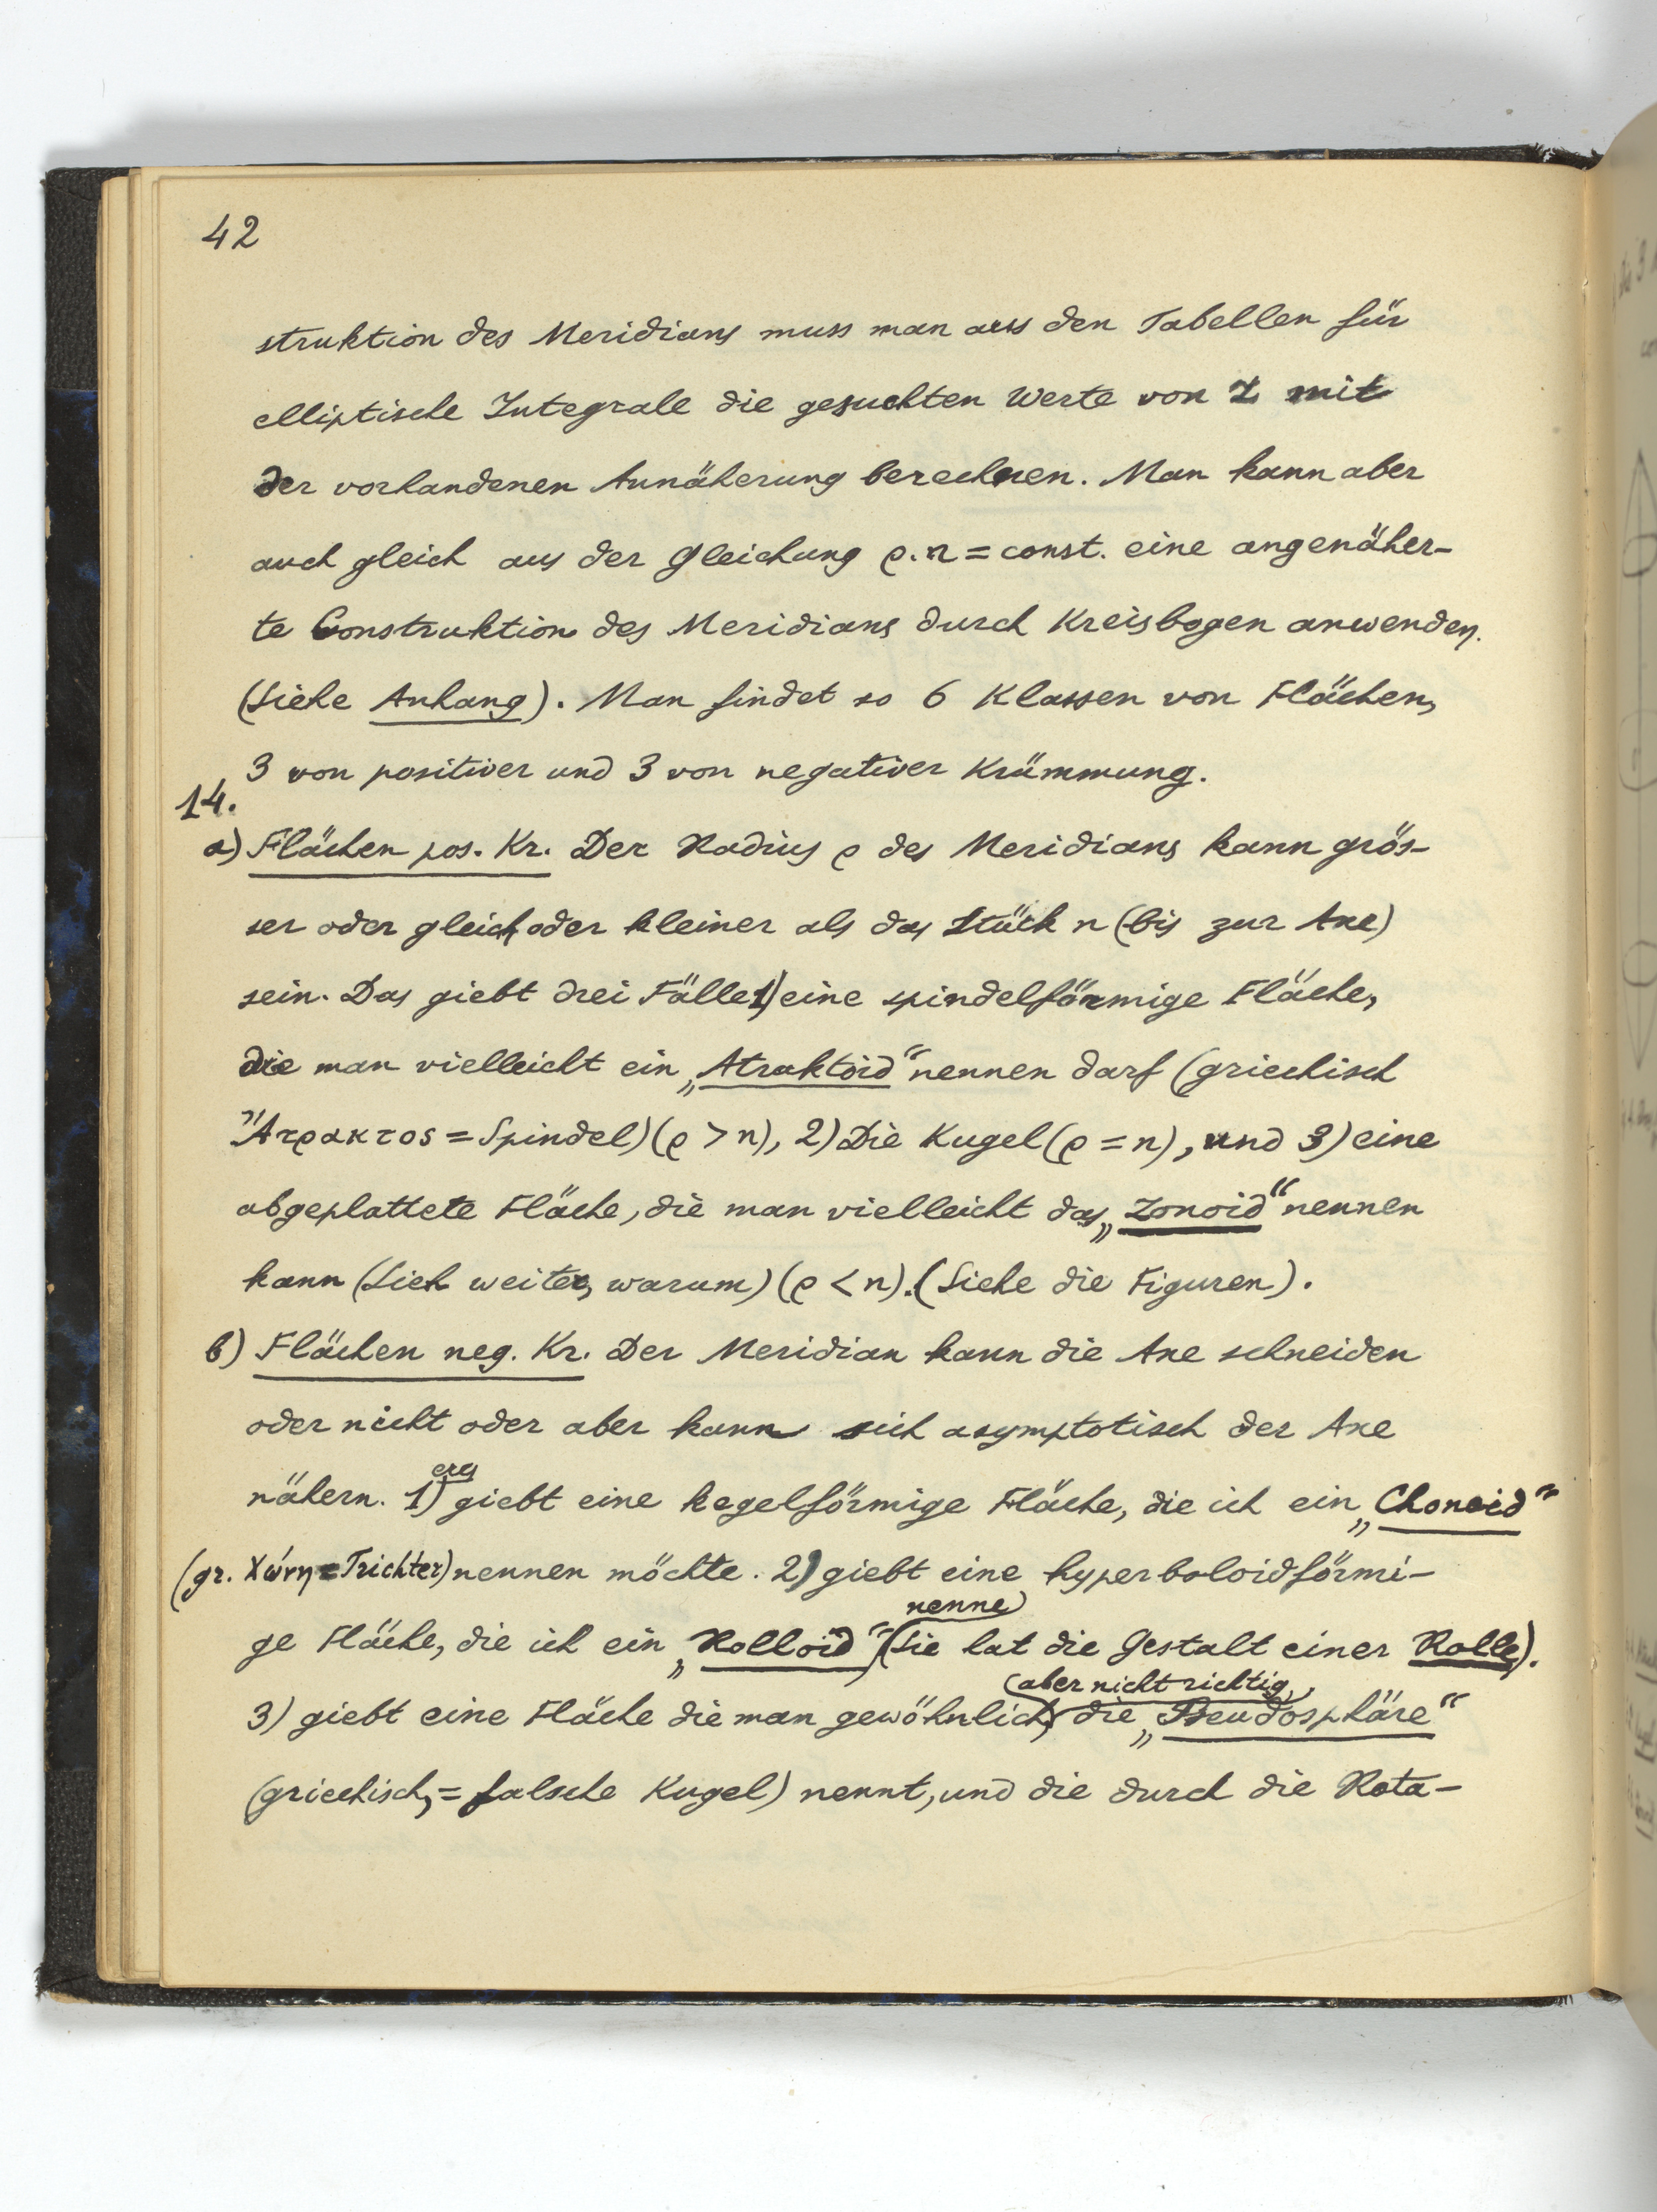 42
struktion des Meridians muss man aus den Tabellen für
elliptische Integrale die gesuchten Werte von z mit
der vorhandenen Annäherung berechnen. Man kann aber
auch gleich aus der Gleichung ρ.n = const. eine angenäher-
te Construktion des Meridians durch Kreisbogen anwenden.
(Siehe Anhang). Man findet so 6 Klassen von Flächen,
3 von positiver und 3 von negativer Krümmung.
14.
a) Flächen pos. Kr. Der Radius ρ des Meridians kann grös-
ser oder gleich oder kleiner als das Stück n (bis zur Axe)
sein. Das giebt drei Fälle 1) eine spindelförmige Fläche,
die man vielleicht ein „Atraktoid“ nennen darf (griechisch
Ἄτρακτος = Spindel) (ρ > n), 2) Die Kugel (ρ = n), und 3) eine
abgeplattete Fläche, die man vielleicht das „Zonoid“ nennen
kann (Sieh weiter, warum) (ρ < n). (Siehe die Figuren).
b) Flächen neg. Kr. Der Meridian kann die Axe schneiden
oder nicht oder aber kann sich asymptotisch der Axe
nähern. 1) es giebt eine kegelförmige Fläche, die ich ein „Chonoid“
(gr. Χώνη = Trichter) nennen möchte. 2) giebt eine hyperboloidförmi-
ge Fläche, die ich ein „Rolloid“ nenne (Sie hat die Gestalt einer Rolle).
3) giebt eine Fläche die man gewöhnlich, aber nicht richtig, die „Pseudosphäre“
(griechisch, = falsche Kugel) nennt, und die durch die Rota-